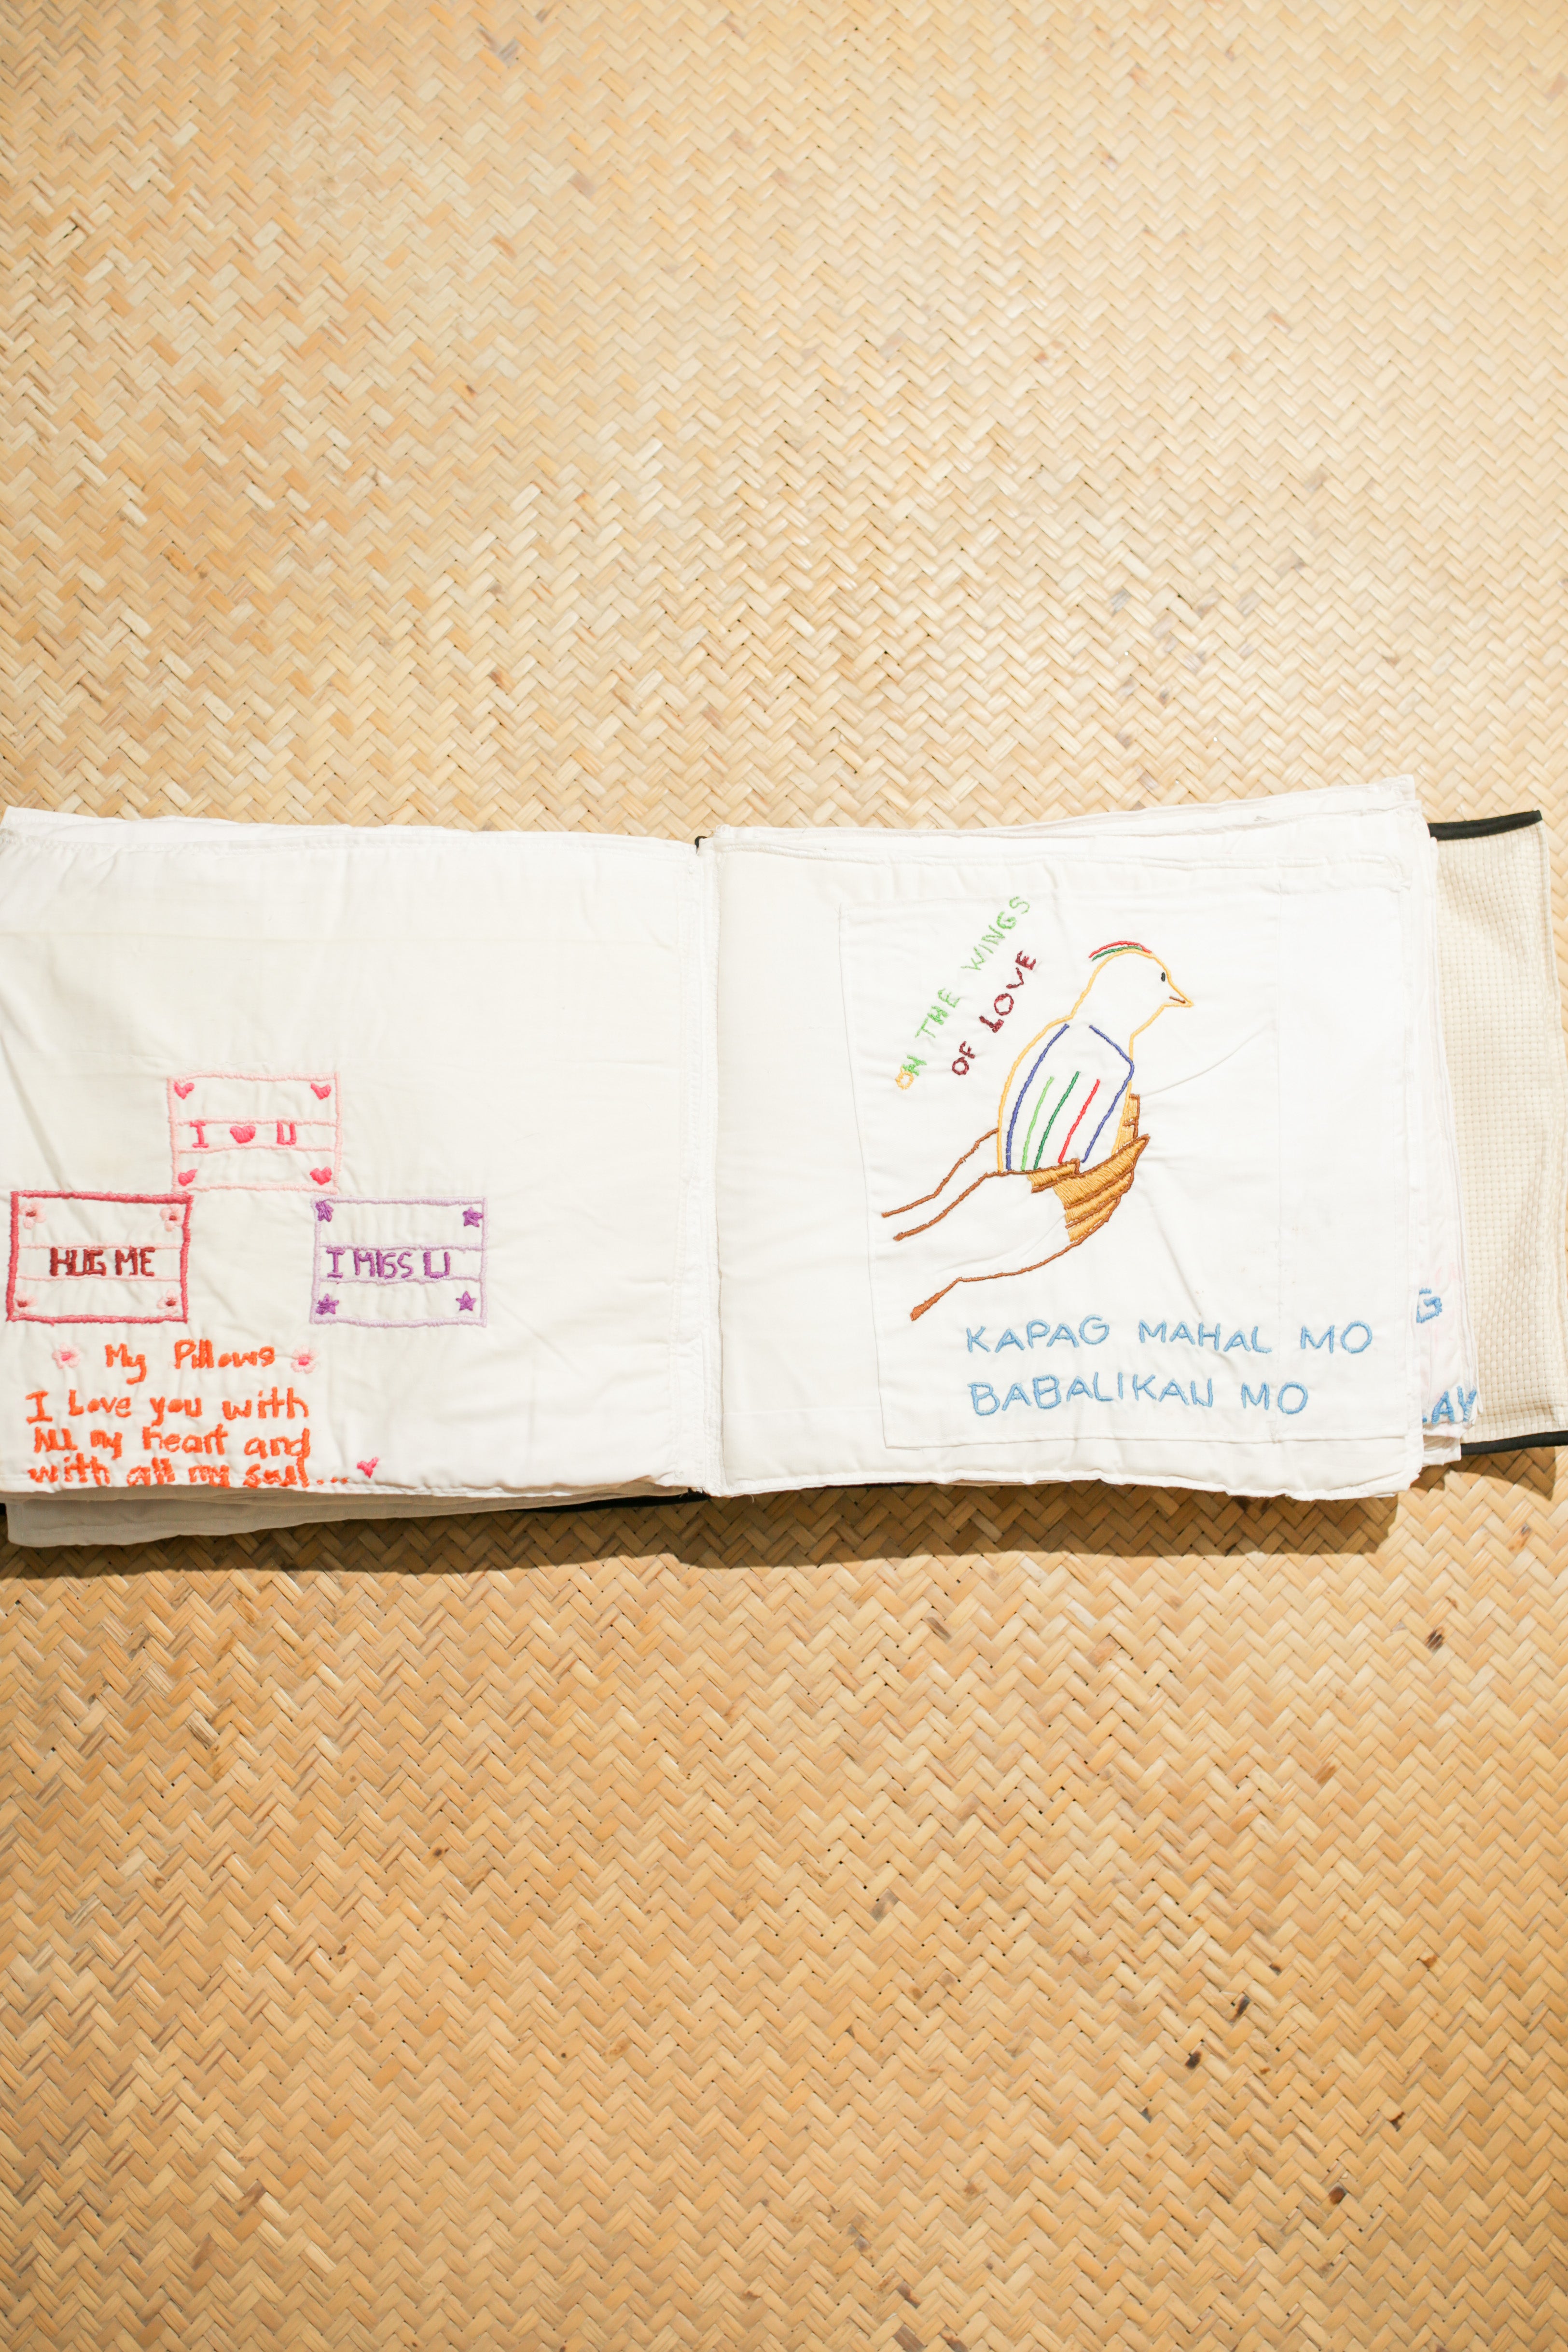 I ♥ U
HUG ME
I MISS U
My Pillows
I Love you with
All my heart and
with all my soul...
ON THE WINGS
OF LOVE
KAPAG MAHAL MO
BABALIKAN MO
G
LAY